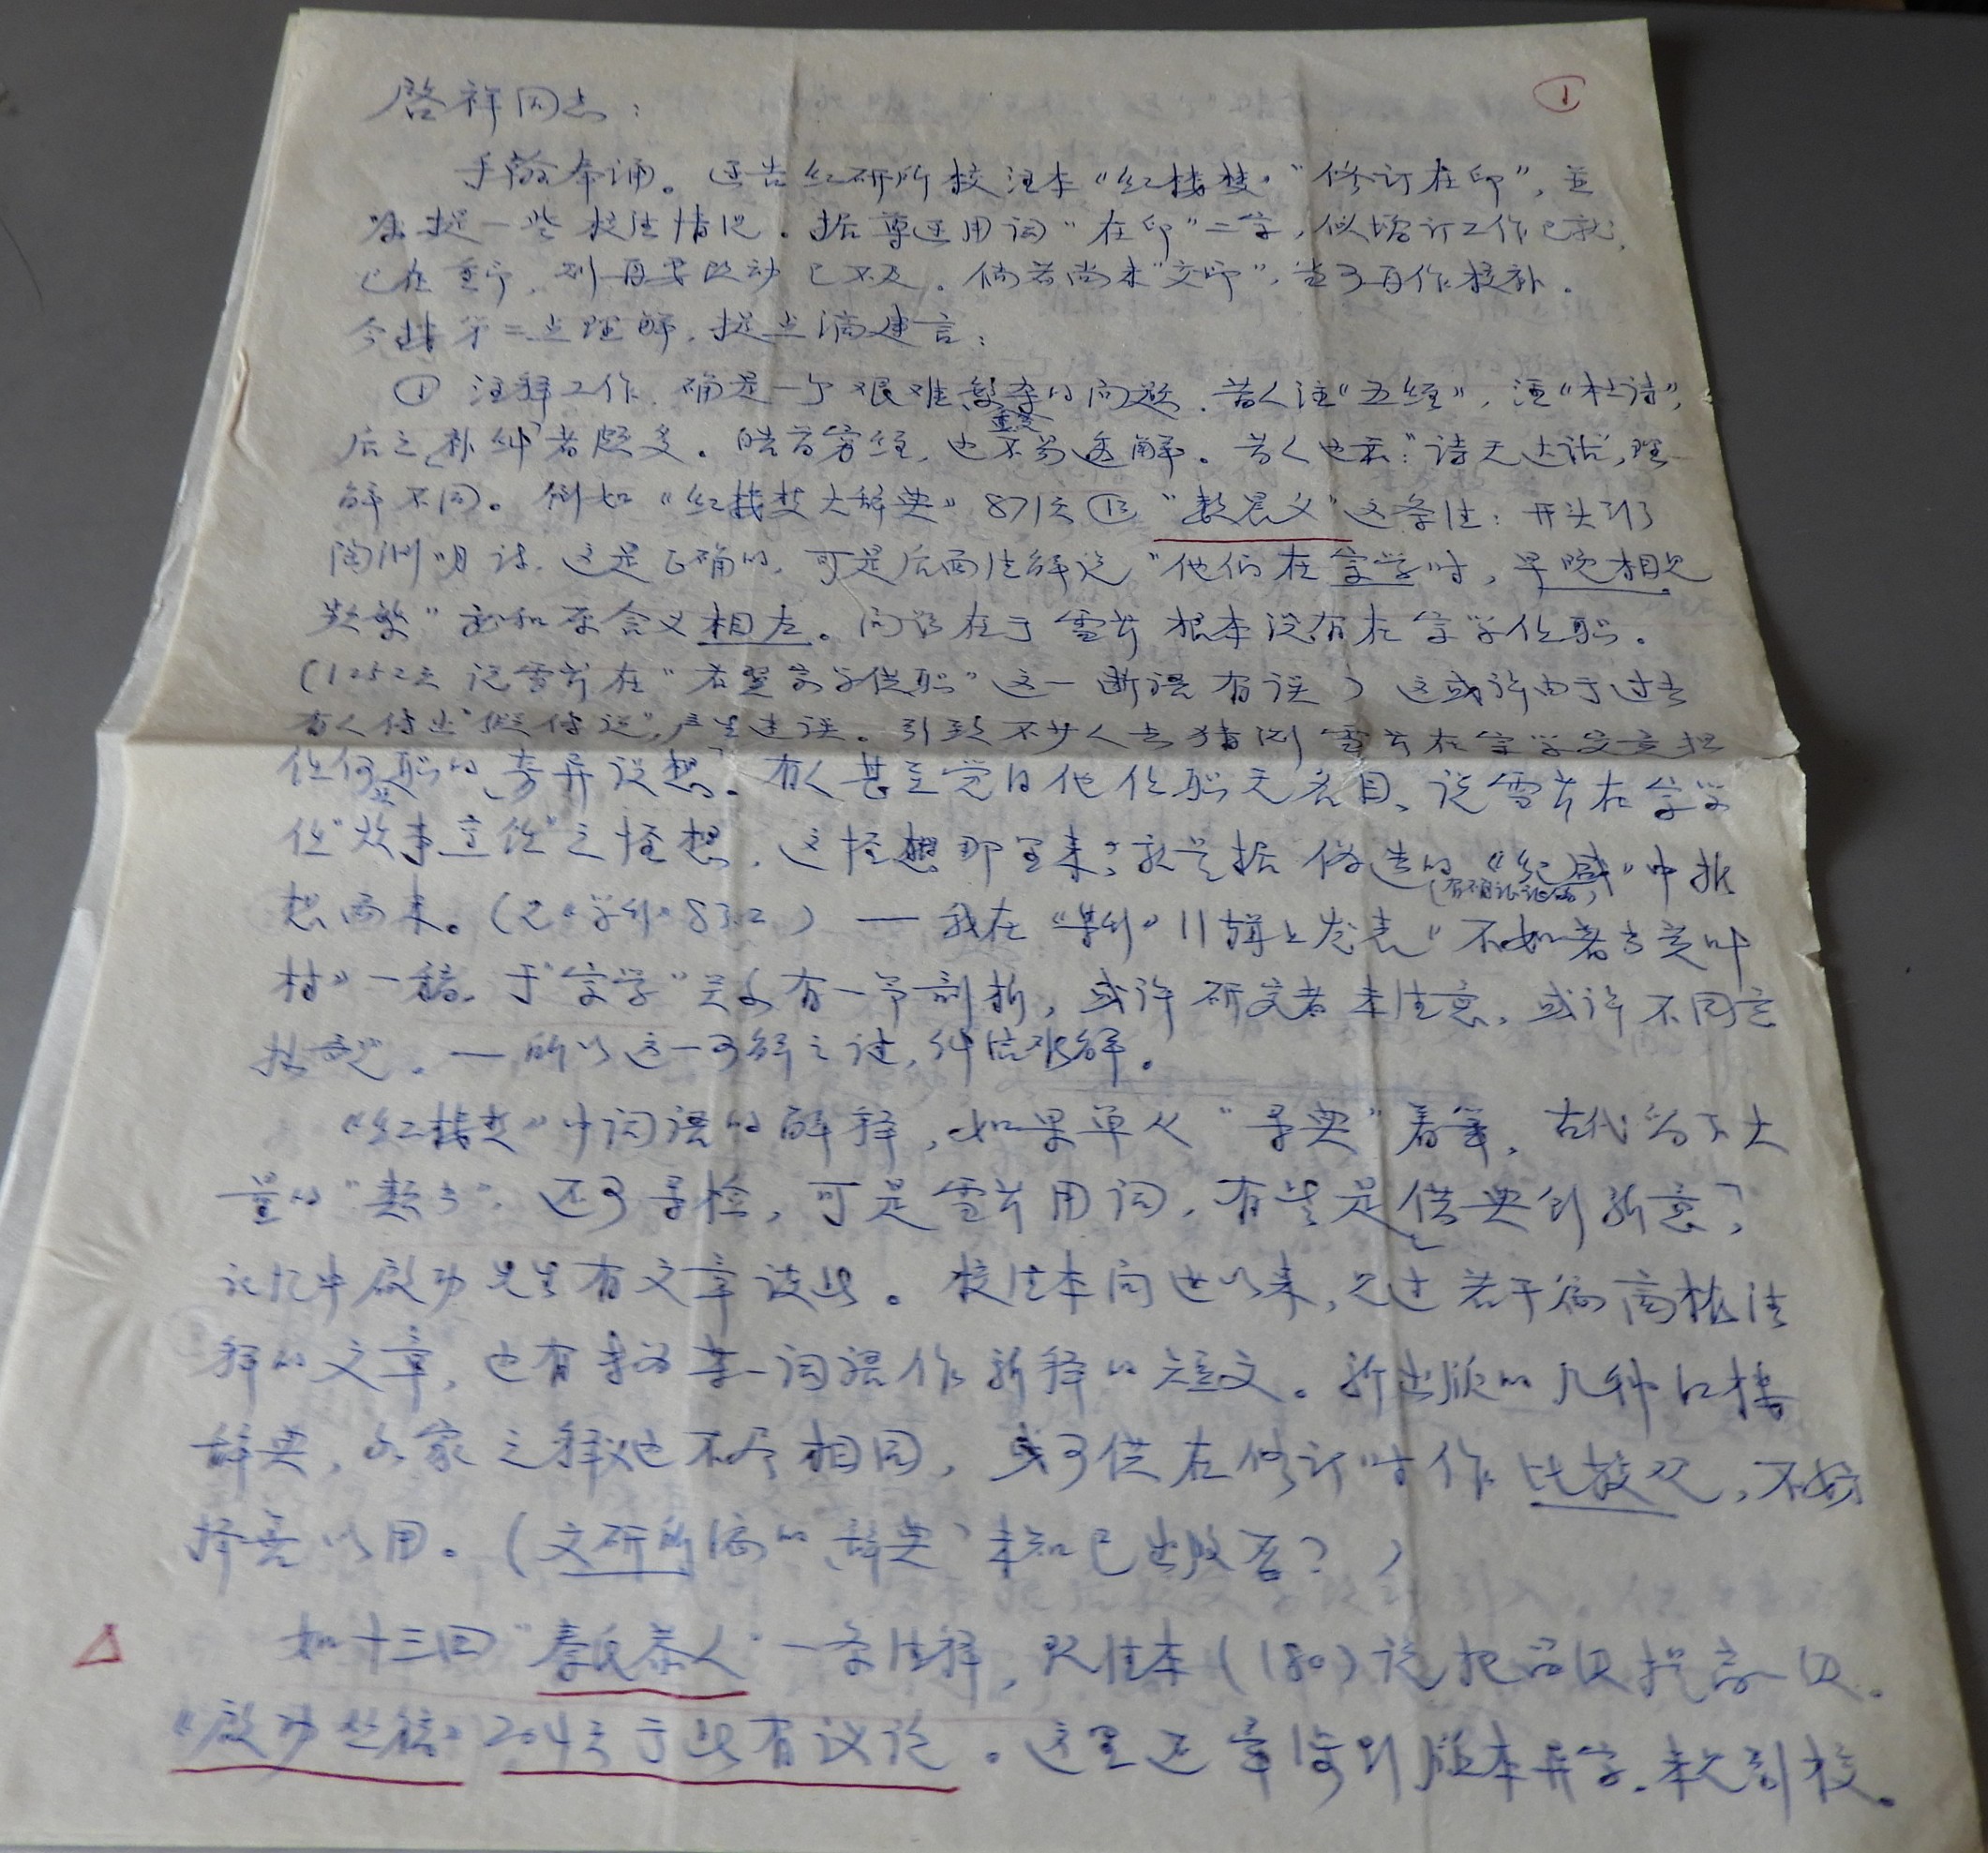 ①
启祥同志：
手翰奉诵。述告红研所校注本《红楼梦》“修订在印”，并
提一些校注情况。据尊述用词“在印”二字，似增订工作已就，
已在重印，则再要改动已不及。倘若尚未“交印”，当可再作校补。
今据第二点理解，提点滴建言：
① 注释工作，确是一个艰难复杂的问题，昔人注“五经”，注“杜诗”，
后之补纠者颇多。皓首穷经，也不易尽解。昔人也云：“诗无达诂”，理
解不同。例如《红楼梦大辞典》871页 “数晨夕”这条注：开头引
陶渊明诗，这是正确的，可是后面注解说“他们在宗学时，早晚相见
频繁”就和原含义相左。问题在于雪芹根本没有在宗学任职。
（1252页说雪芹在“右翼宗学供职”这一断语有误）这或许由于过去
有人传出“假传说”，产生迷误。引致不少人去猜测雪芹在宗学究竟担
任何职的奇异设想。有人甚至觉得他任职无名目，说雪芹在宗学
任“炊事主任”之怪想，这怪想那里来？就是据伪造的《 》中推
想而来。（见《学刊》83.2）—我在《集刊》11辑上发表“不如著书黄叶
村”一稿，于“宗学”关系有一节剖析，或许研究者未注意，或许不同意
拙见。—所以这一可解之谜，纠结难解。
《红楼梦》中词语的解释，如果单从“寻典”着笔，古代留下大
量的“类书”，还可寻检，可是雪芹用词，有些是借典创新意，
记忆中启功先生有文章谈此。校注本问世以来，见过若干篇商榷注
释的文章，也有专为某一词语作新释的短文。新出版的几种红楼
辞典，各家之释义也不尽相同，或可供在修订时作比较观，不妨
择善以用。（文研所编的“辞典”未知已出版否？）
△ 如十三回“秦氏恭人”一条注释，见注本（180）说把品级提高一级。
《启功丛稿》204页于此有议论。这里还牵涉到版本异字，未见引校。